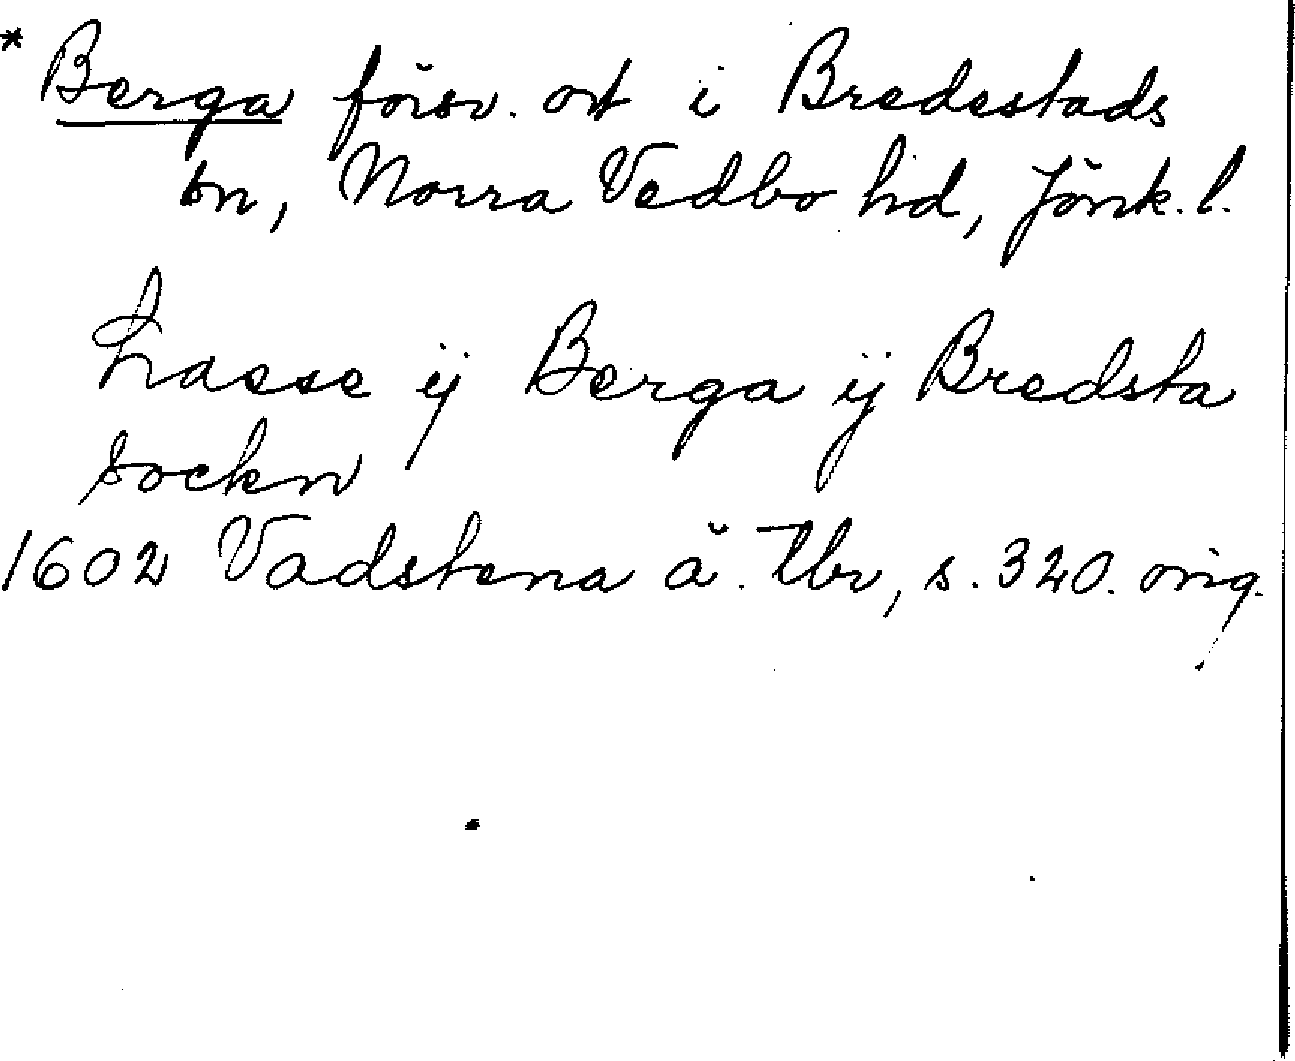 * Berga försv. ort i Bredestads
sn, Norra Vedbo hd, Jönk. l.
Lasse ij Berga ij Bredsta
sockn
1602 Vadstena ä. Tbr, s. 320. orig.